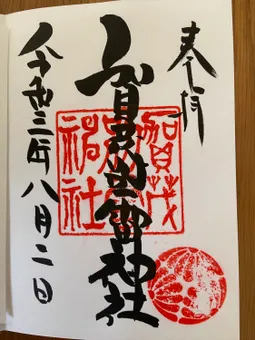 奉拝
賀茂別雷神社
令和三年八月二日
賀茂
神社